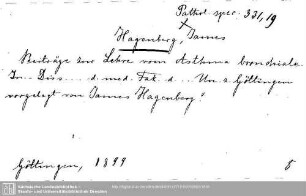 Pathol. spec. 331,19
Hagenberg, James
Beiträge zur Lehre vom Asthma bronchiale.
In. Diss. ... d. med. Fac. d. ... Un. z. Göttingen
vorgelegt von James Hagenberg.
Göttingen, 1899
8
Sächsische Landesbibliothek -
Staats- und Universitätsbibliothek Dresden